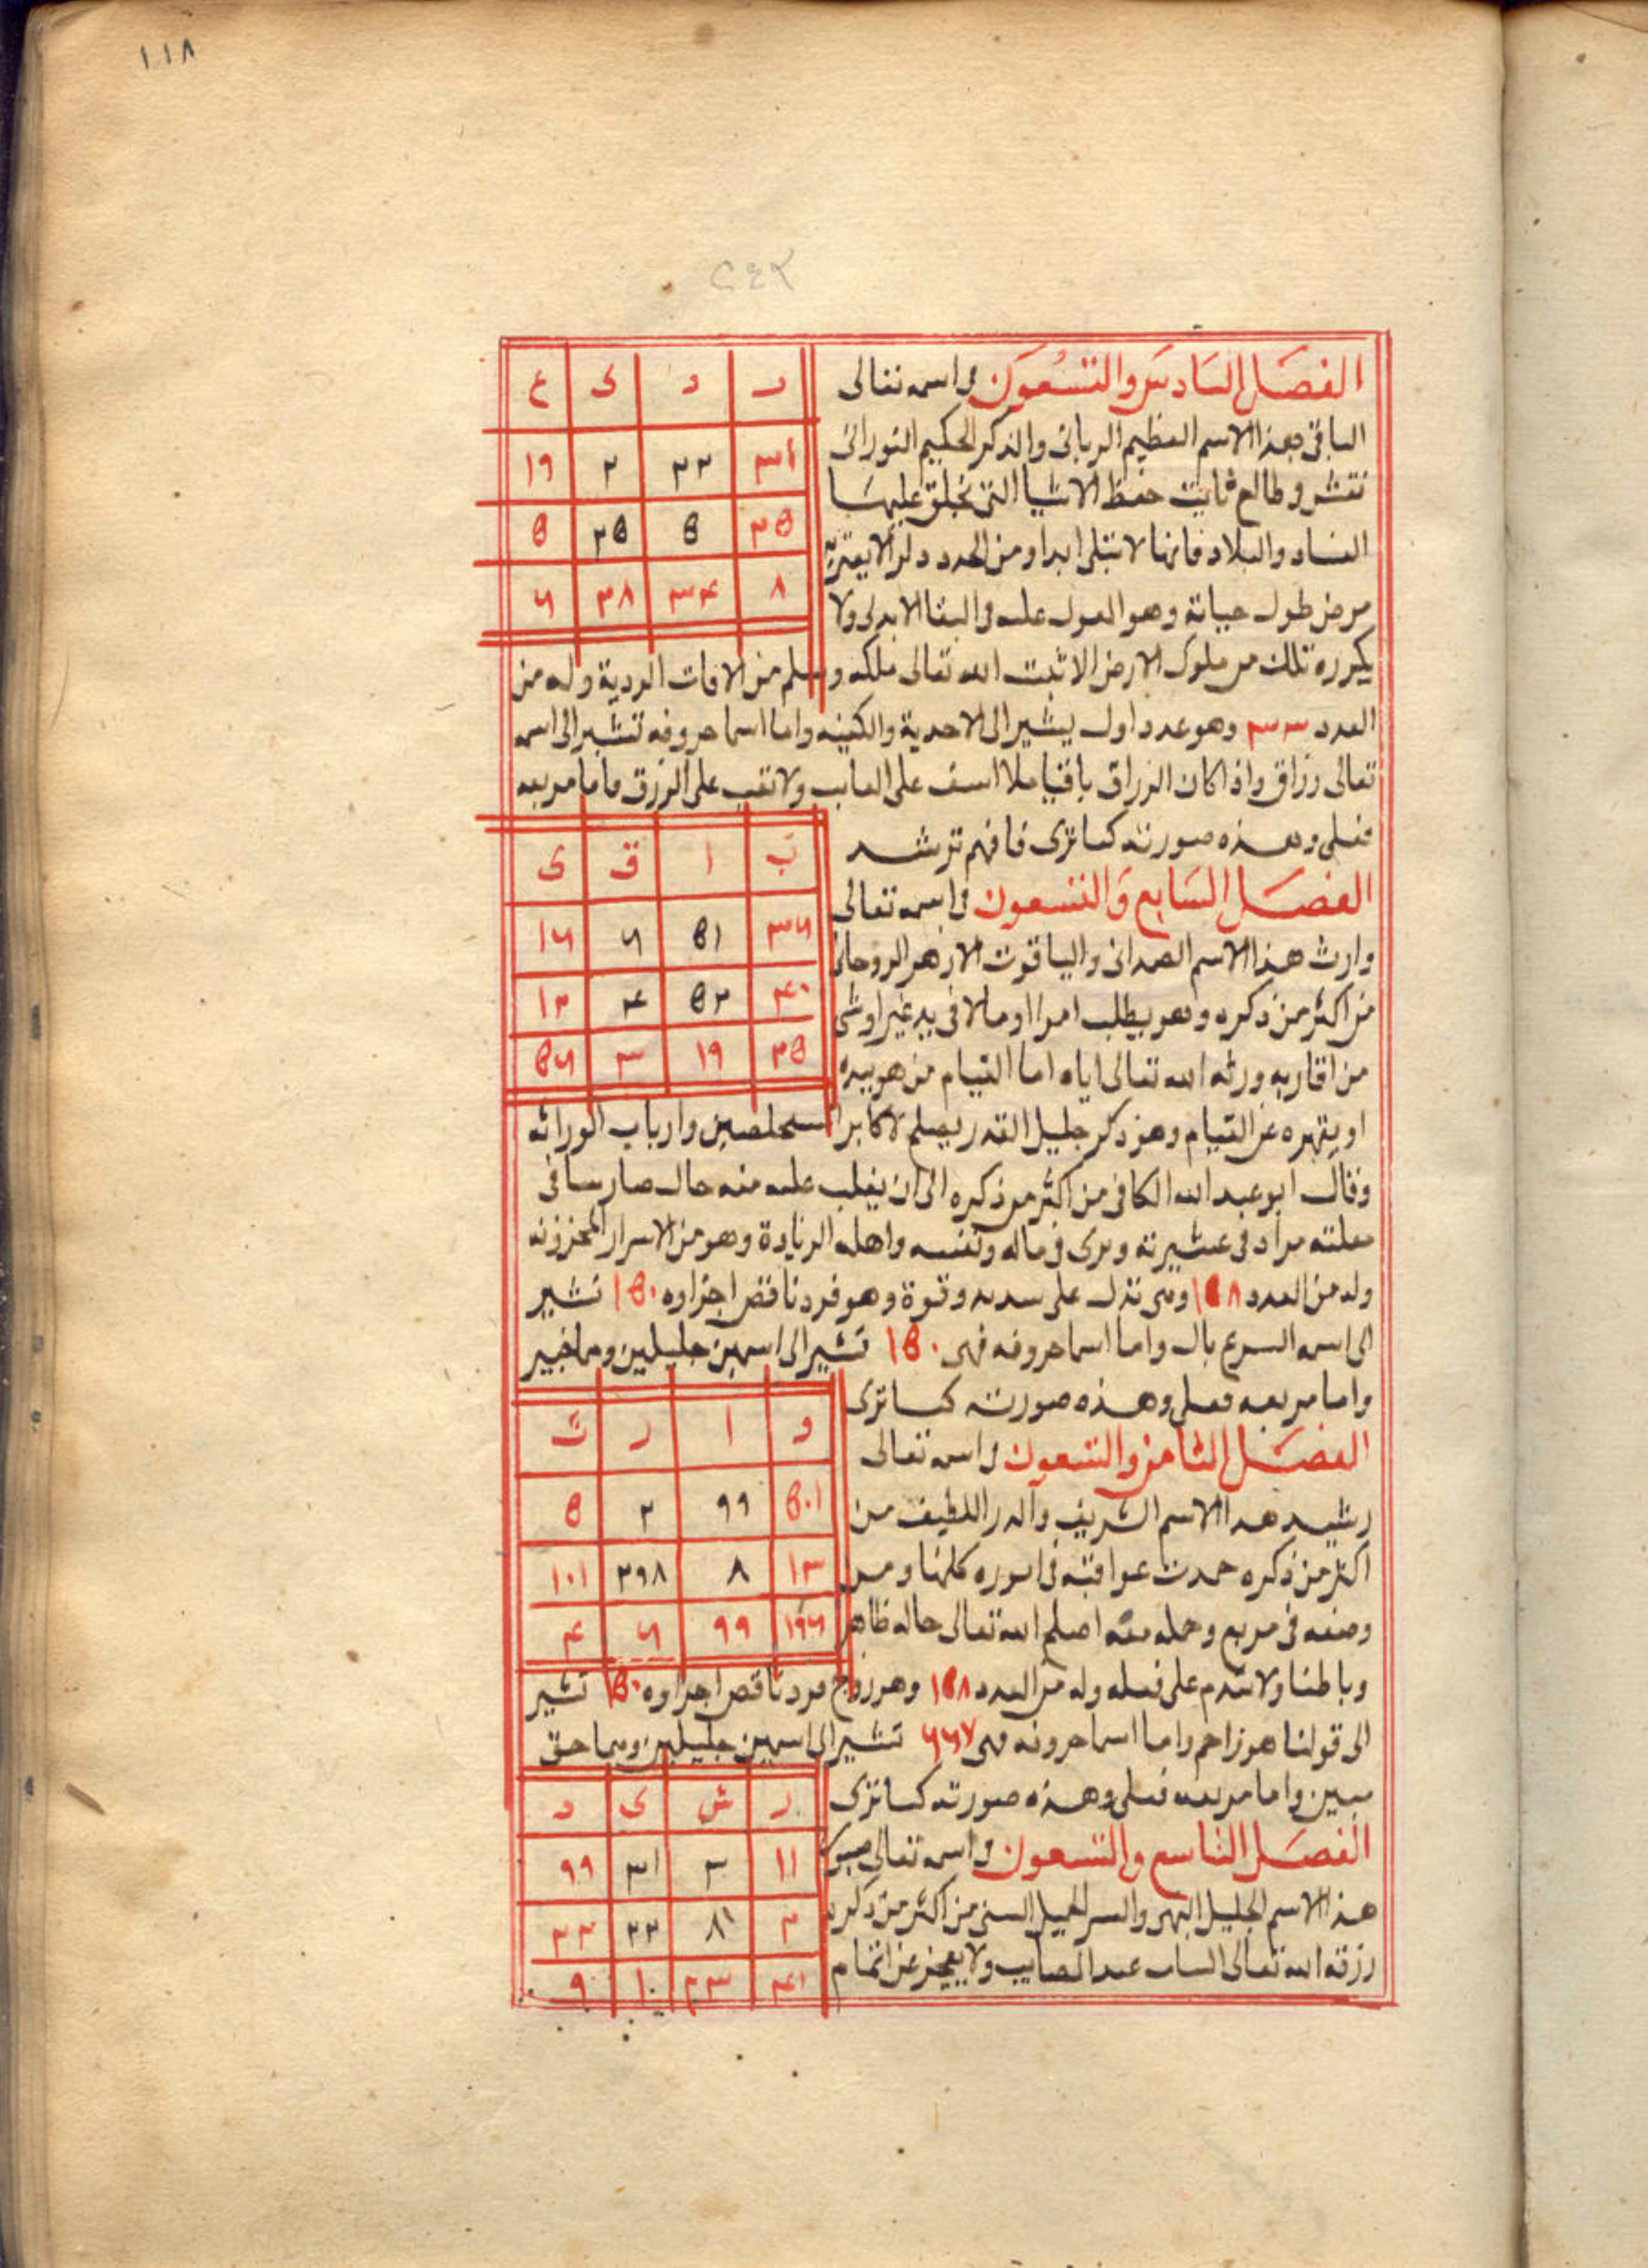 ١١٨
٢٤٢
الفصل السادس والتسعون في اسمه تعالى
الباقي هذا الاسم العظيم الرباني والذكر الحكيم النوراني
تنقش وطالع ثابت حفظ الاشيا التي عليها
الفساد والبلاد فانها لا تبتلى ابدا ومن
مرض طول حياته وهو القول عليه في البقا الابدي ولا
يكرره ملك من ملوك الارض الا ثبت الله تعالى ملكه وسلم من الافات الردية وله من
العدد وهو عدد اول يشير الى الاحدية واما اسما حروفه تشير الى اسمه
تعالى رزاق واذا كان الرزاق باقيا فلا اسف على ولا تعب على الرزق فاما مربعه
فعلي وهذه صورته كما ترى فافهم ترشد
د د ى ع
٣١ ٣٢ ٢ ١٩
٣٥ ٥ ٣٥ ٥
٨ ٣٤ ٣٨ ٦
الفصل السابع والتسعون في اسمه تعالى
وارث هذا الاسم الصمداني والياقوت الازهر الروحاني
من اكثر من ذكره وهو يطلب امرا او مالا في يد غير اوشي
من اقاربه ورثه الله تعالى اياه اما القيام من هو بيده
او يقهره عن القيام وهو ذكر جليل القدر يصلح لاكابر المستخلصين وارباب الوراثه
وقال ابو عبد الله الكافي من اكثر من ذكره الى ان يغلب عليه منه حال صار
في عشيرته ويرى في ماله ونفسه واهله الزيادة وهو من الاسرار المخزونه
وله من العدد ١٥٨ وهي تدل على وقوة وهو فرد ناقص اجزاوه ١٥٠ تشير
الى اسمه السريع واما اسما حروفه فهي ١٥٠ تشير الى اسمين جليلين وهما خبير
واما مربعه فعلي وهذه صورته كما ترى
ب ا ق ى
٣٦ ٥١ ٦ ١٦
٤٠ ٥٢ ٤ ١٣
٣٥ ١٩ ٣ ٥٦
الفصل الثامن والتسعون في اسمه تعالى
رشيد هذا الاسم الشريف والدر اللطيف من
اكثر من ذكره حمدت عواقبه في اموره كلها ومن
وضعه في مربع وحمله معه اصلح الله تعالى حاله ظاهرا
وباطنا ولا يندم على فعله وله من العدد ١٥٨ وهو زوج فرد ناقص اجزاوه ١٥٠ تشير
الى قولنا هو واما اسما حروفه فهى ٦٦٧ تشير الى اسمين جليلين وهما حق
مبين واما مربعه فعلي وهذه صورته كما ترى
و ا ر ث
٥٠١ ٩٩ ٢ ٥
١٣ ٨ ٣٩٨ ١٠١
١٩٦ ٩٩ ٦ ٤
الفصل التاسع والتسعون في اسمه تعالى صبور
هذا الاسم الجليل البهي والسر الجميل السني من اكثر من ذكره
رزقه الله تعالى الثبات عند المصايب ولا يعجز عن اتمام
ر ش ى د
١١ ٣ ٣١ ٩٩
٣ ٨١ ٢٢ ٣٣
٤١ ٣٣ ١٠ ٩